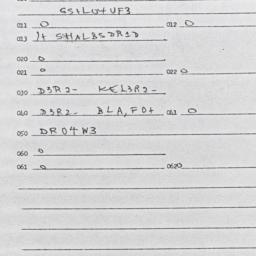 GS+LU4UF3
011 0 012 0
013 1t S4IALBSDR1D
020 0
021 0 022 0
030 D3R2- KEL3R2-
040 D3R2- BLA,FO+ 041 0
050 DR04W3
060 0
061 0 0620